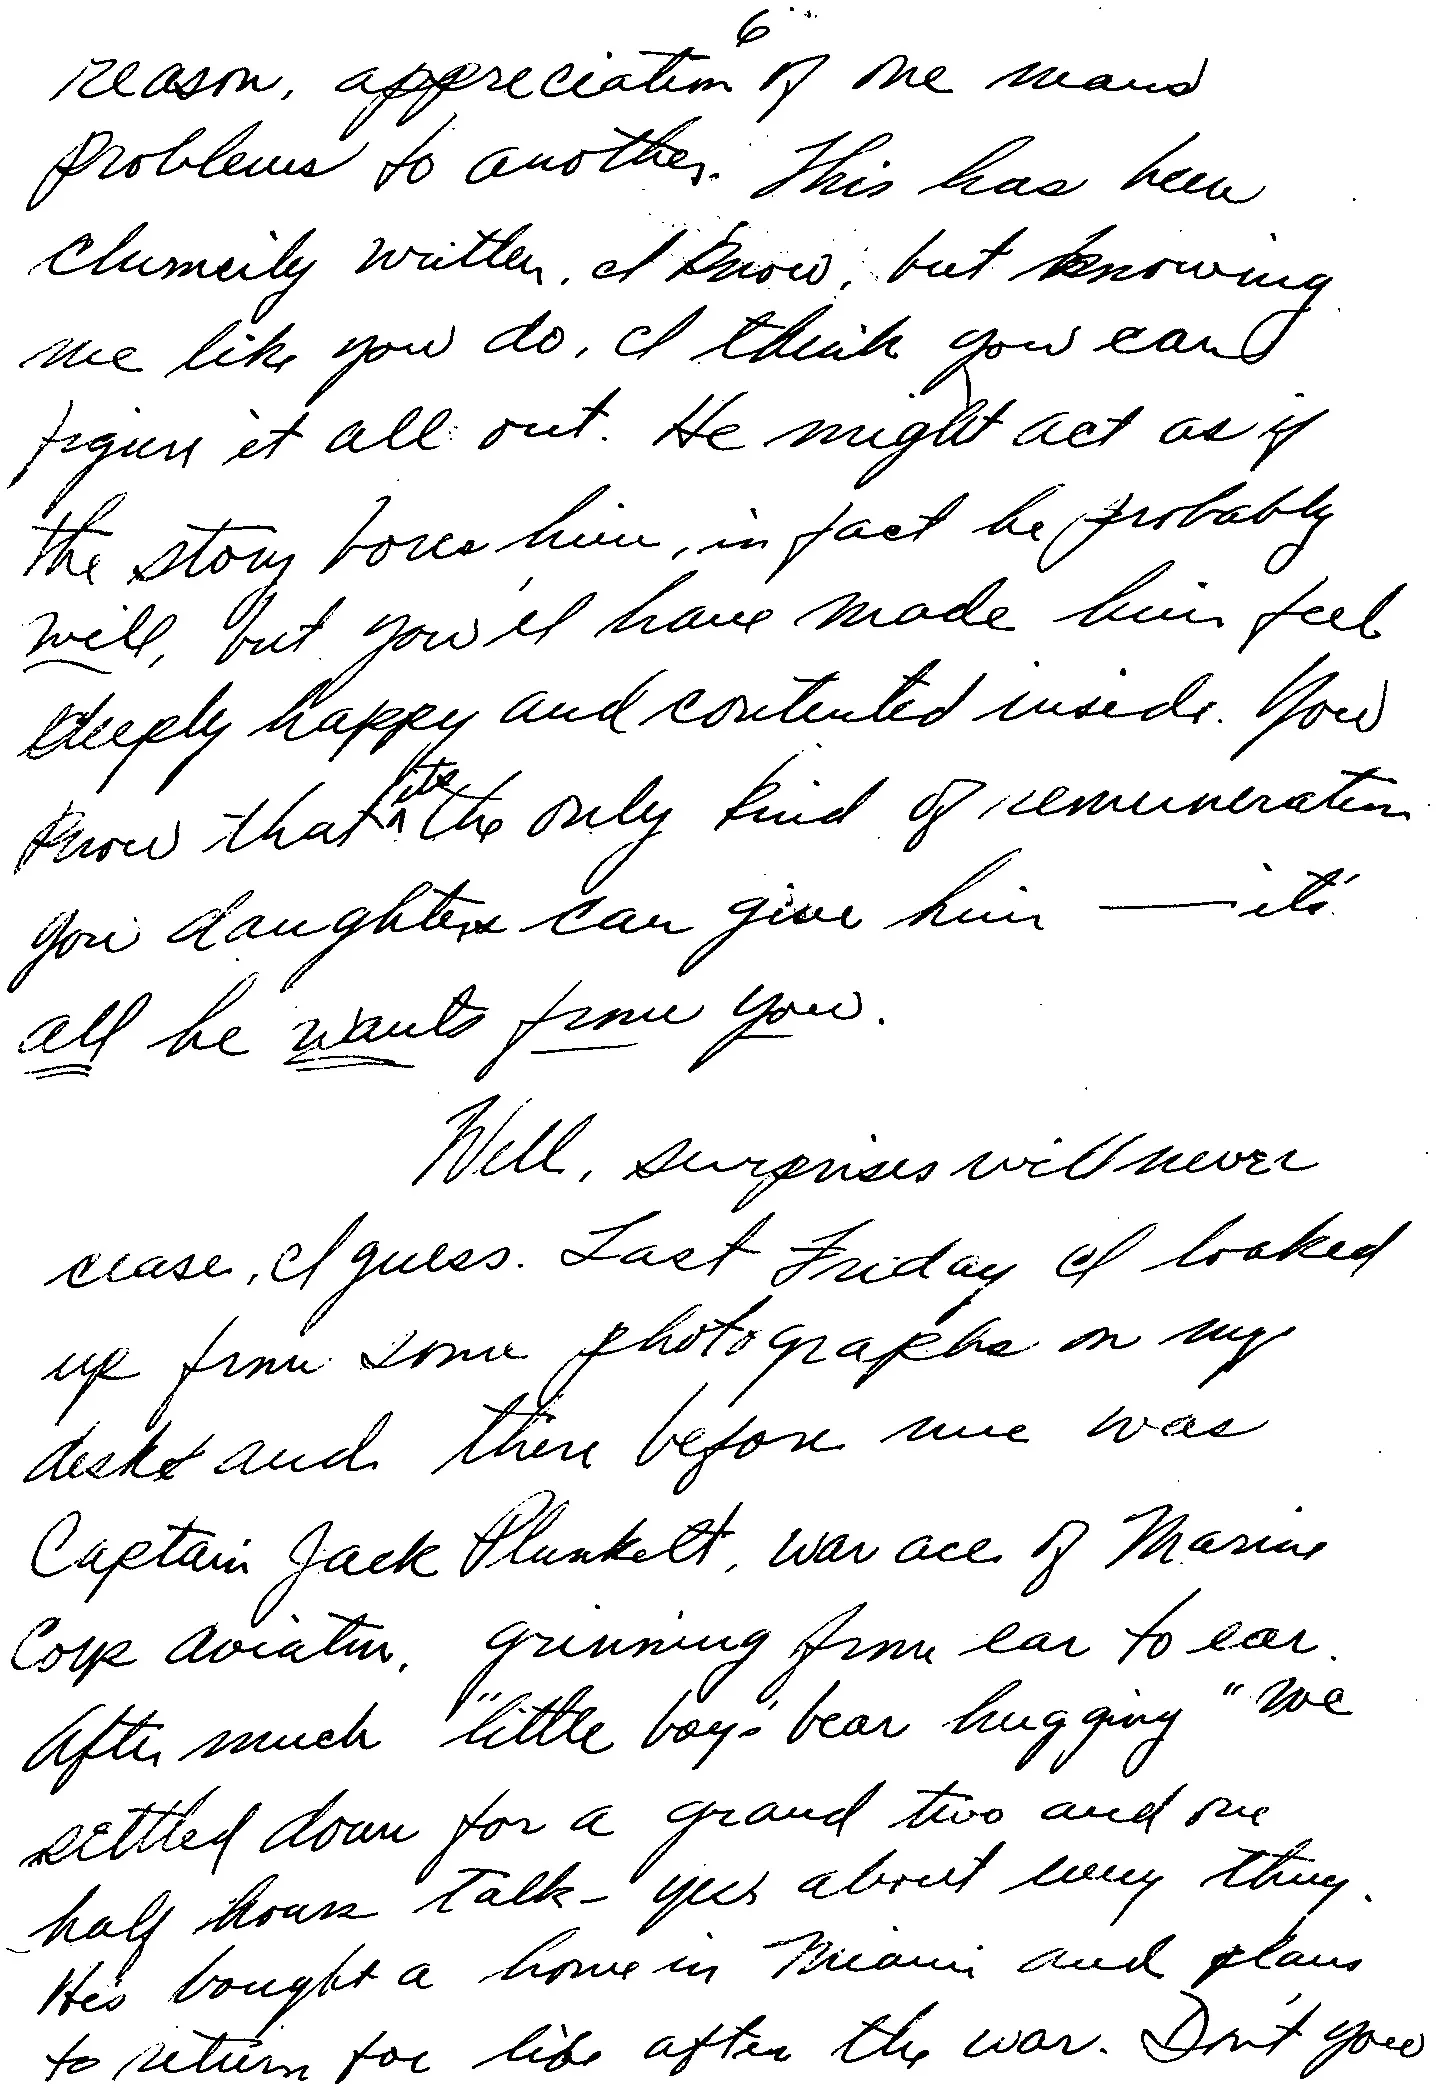 6
reason, appreciation of one mans
problems to another. This has been
clumsily written, I know, but knowing
me like you do, I think you can
figure it all out. He might act as if
the story bores him, in fact he probably
will, but you'll have made him feel
deeply happy and contented inside. You
know that its the only kind of remuneration
you daughters can give him — it's
all he wants from you.
Well, surprises will never
cease, I guess. Last Friday I looked
up from some photographs on my
desk and there before me was
Captain Jack Plunkett, war ace of Marine
Corp Aviation, grinning from ear to ear.
After much "little boys' bear hugging" we
settled down for a grand two and one
half hours talk - yes about every thing.
He's bought a home in Miami and plans
to return for life after the war. Don't you